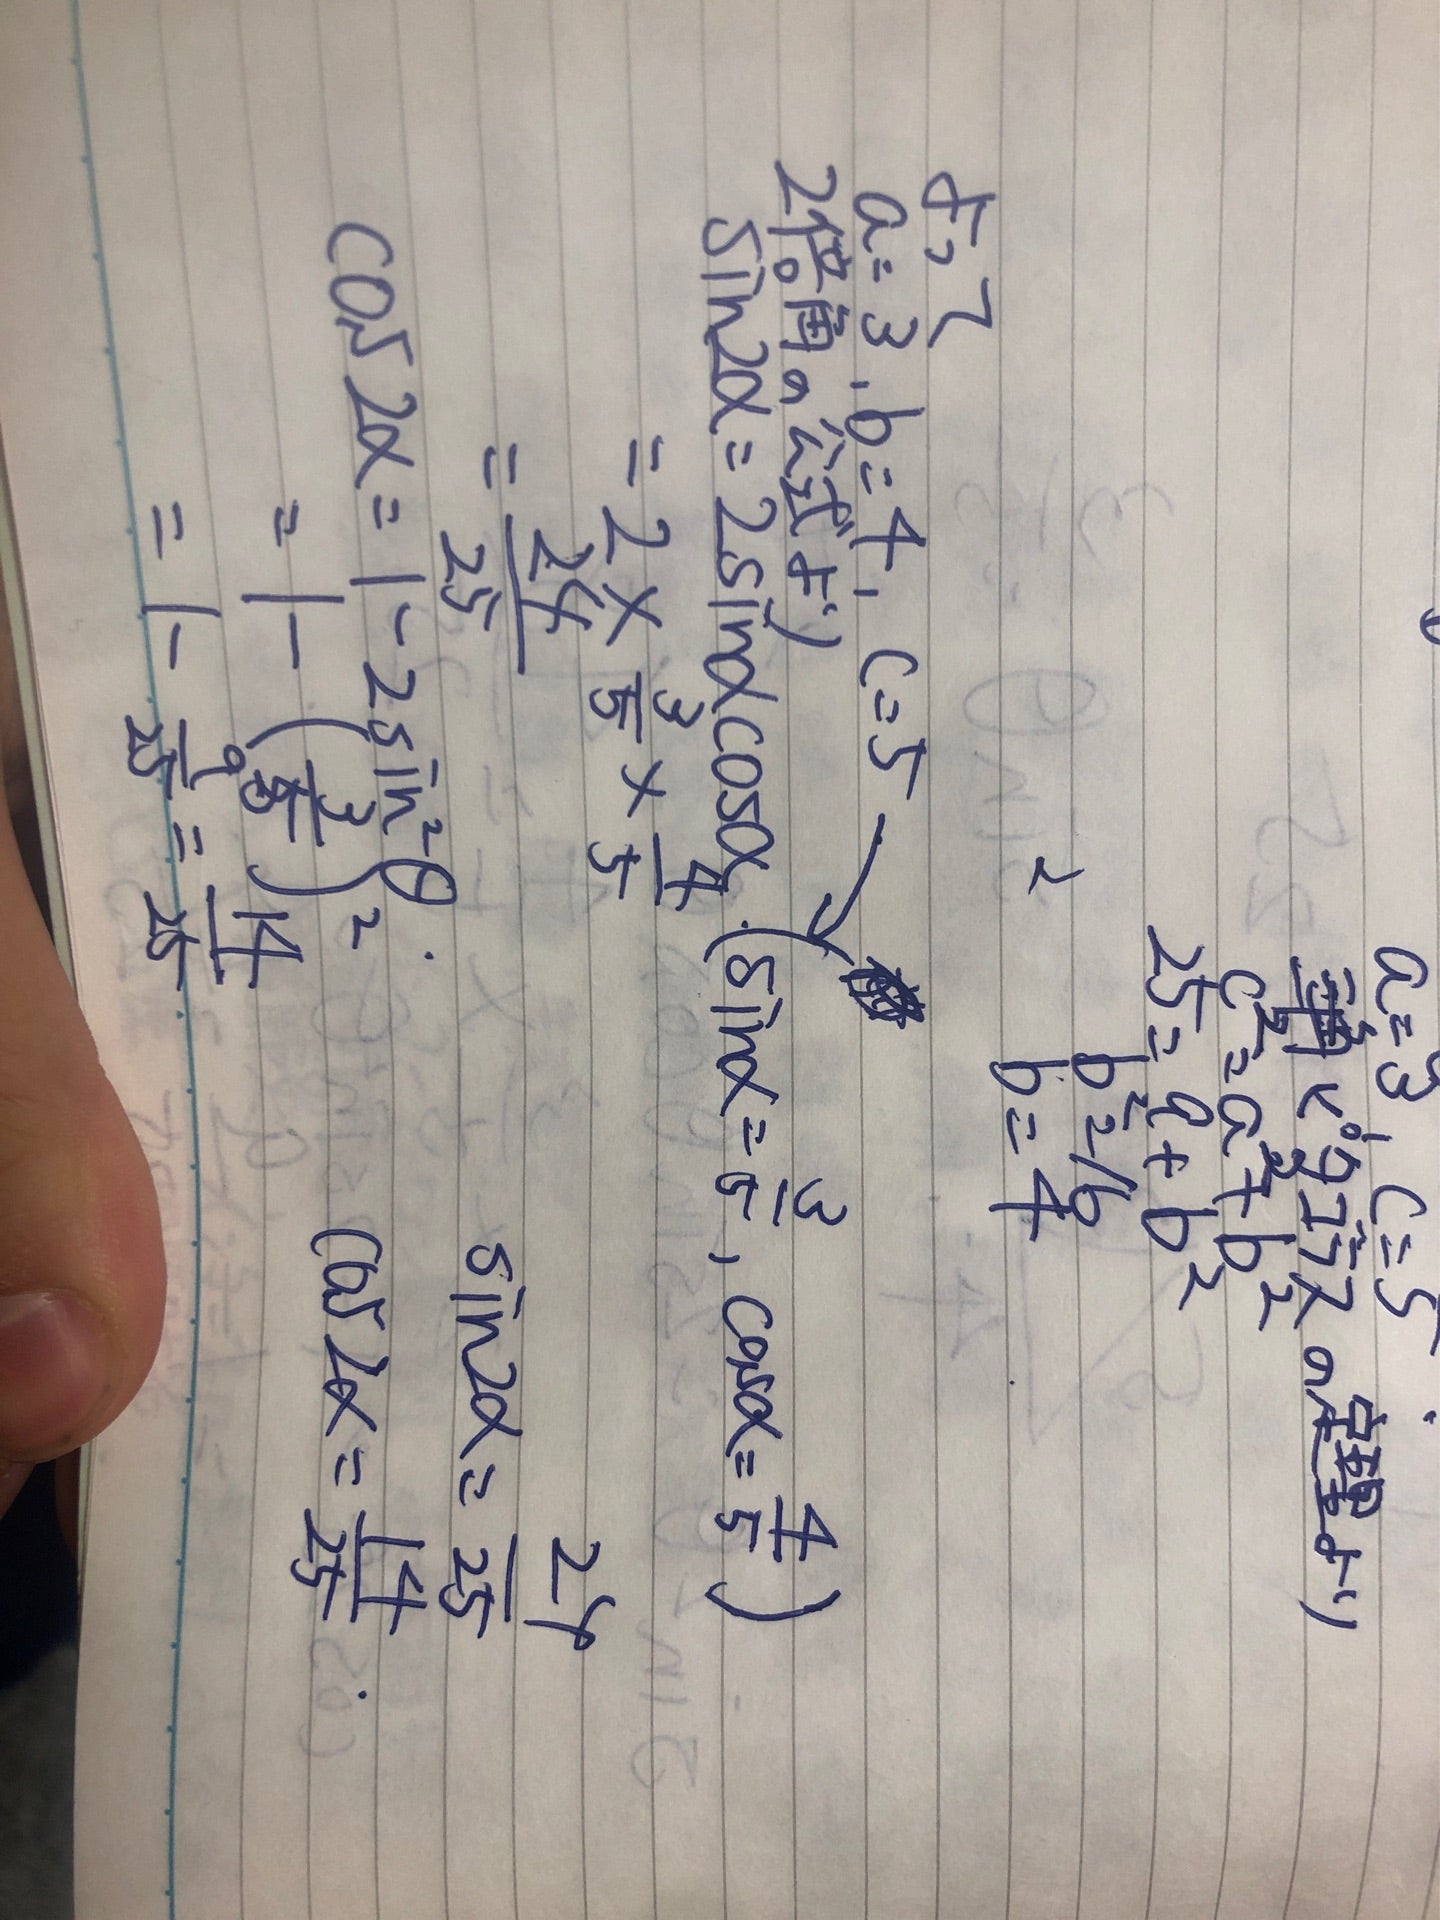 a=3, c=5
三角ピタゴラスの定理より
c²=a²+b²
25=9+b²
b²=16
b=4
よって
a=3, b=4, c=5
2倍角の公式より
sin2α=2sinαcosα. (sinα=3/5, cosα=4/5)
=2×3/5×4/5
=24/25
cos2α=1-2sin²θ.
=1-(3/5)²
=1-9/25=14/25
sin2α=24/25
cos2α=14/25.